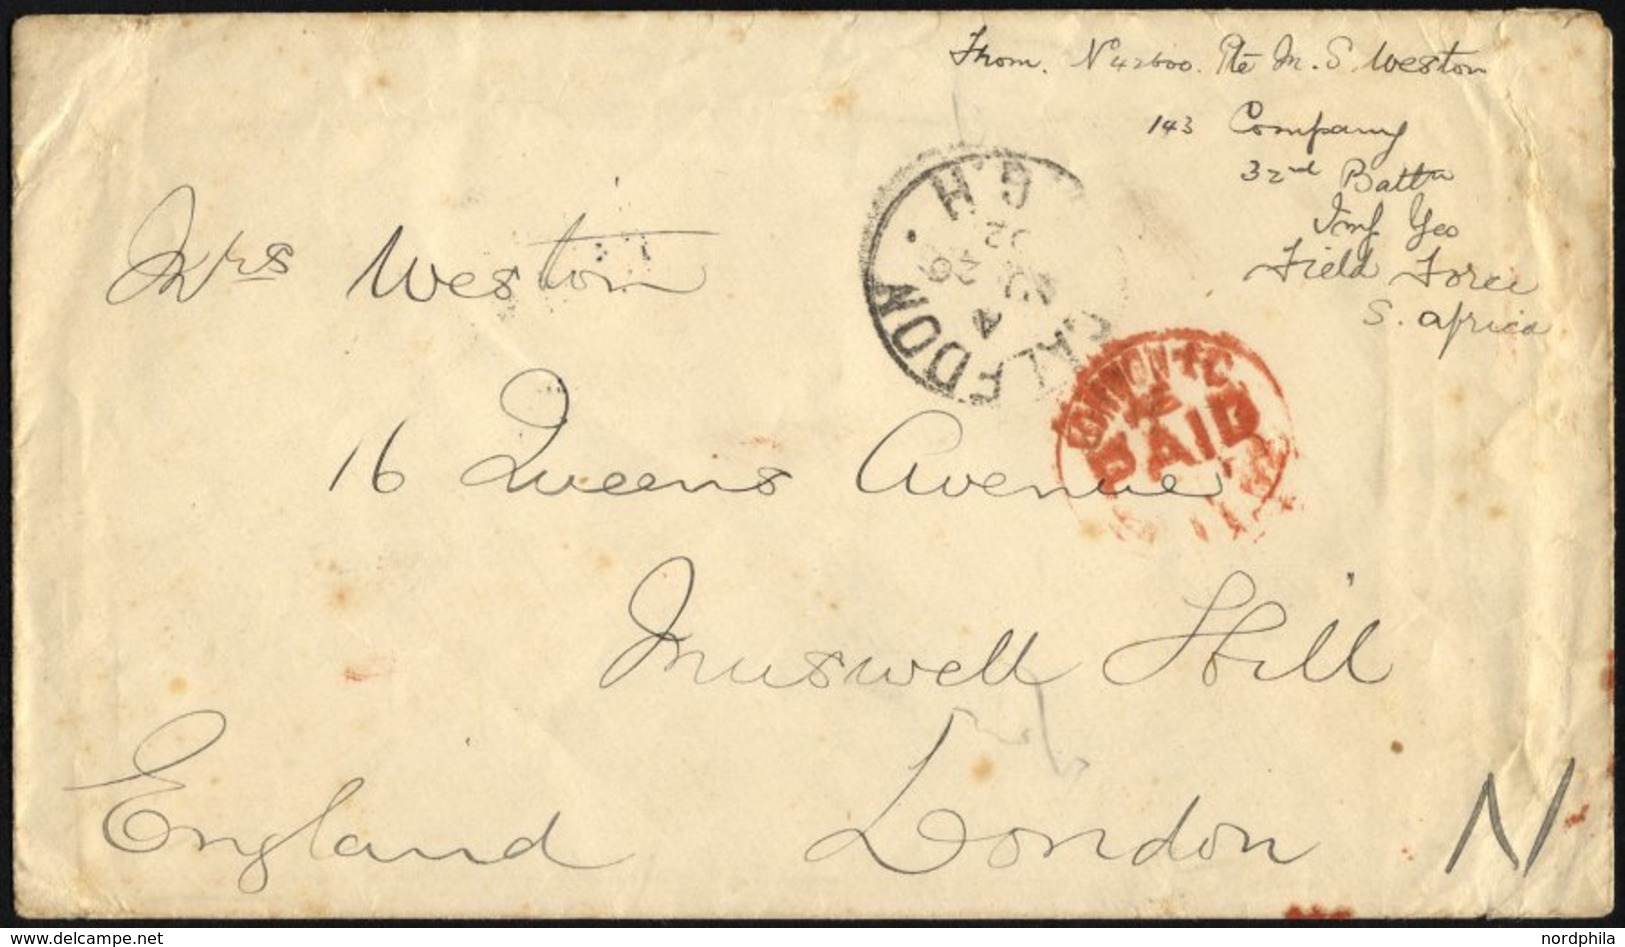 From. N 42600. Pte M. S. Weston
143 Company
32nd Battn
Imp Yeo
Field Force
S. Africa
Mrs Weston
16 Queens Avenue
Muswell Hill
London
England
N
CALEDON
G.H
26
02
PAID
delcampe.net
nordphila